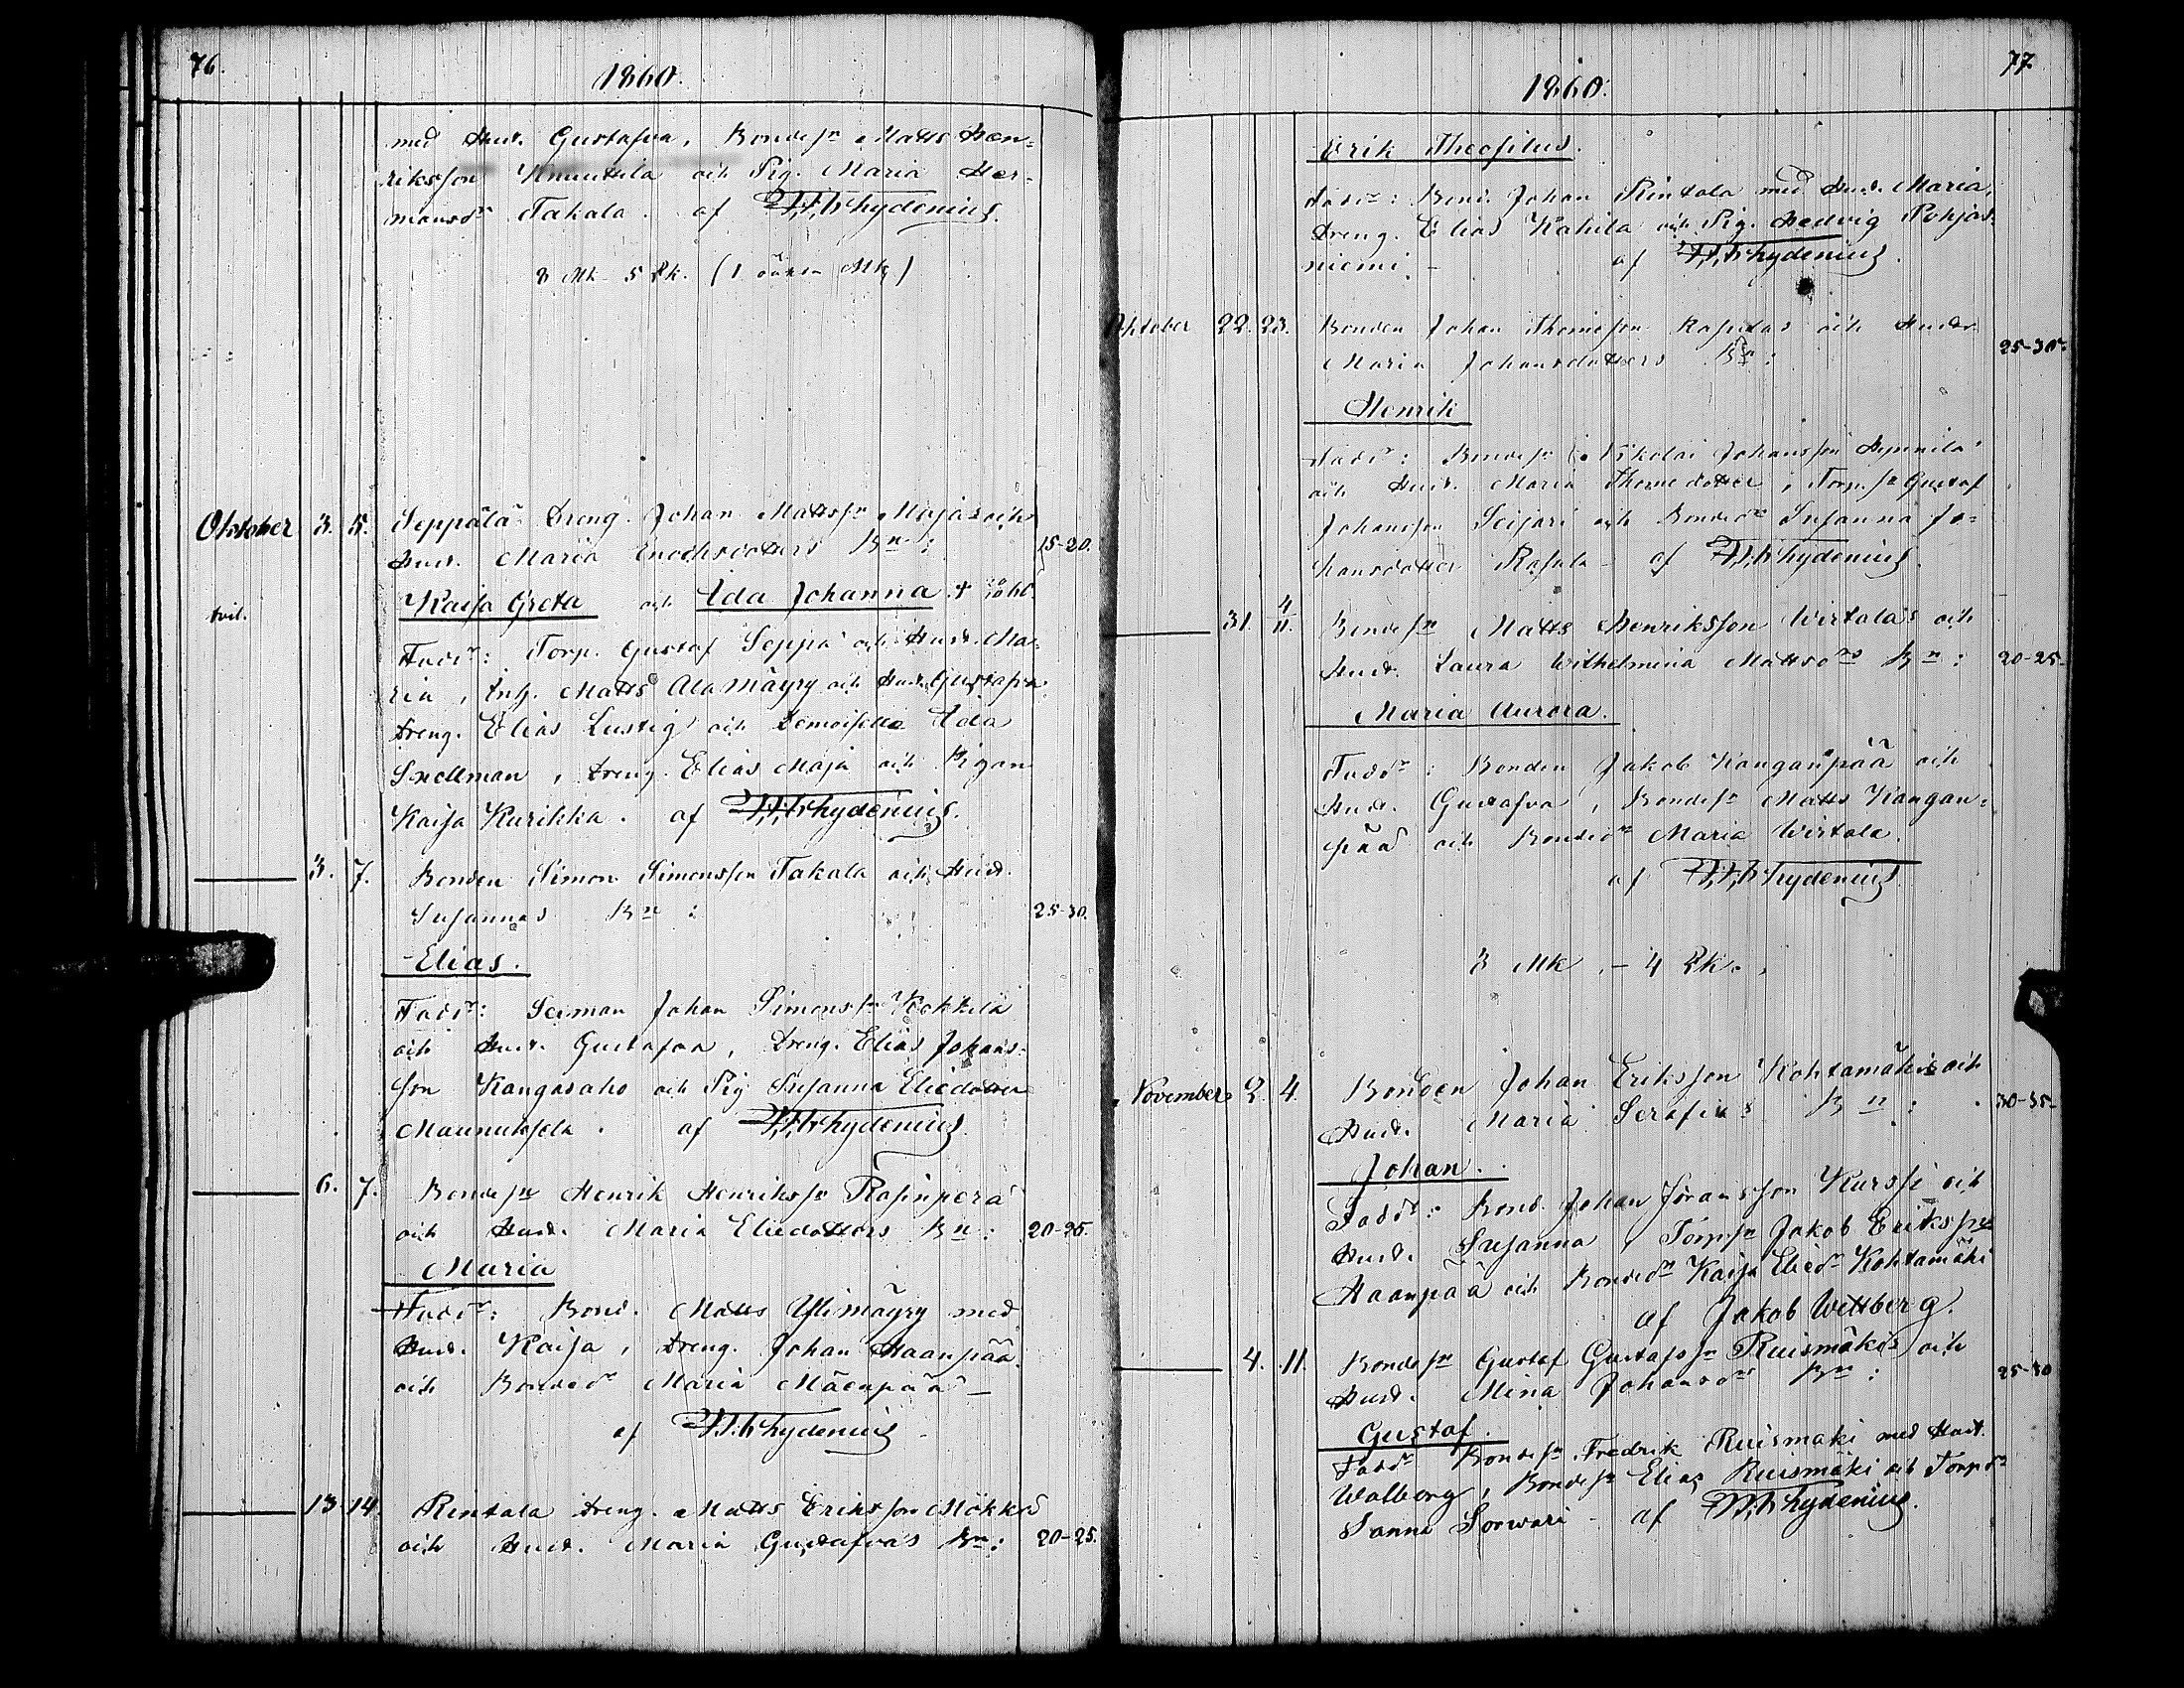 76.
1860.
med Hust. Gustafva, Bondesn Matts Hen=
riksson Knuutila och Pig. Maria Her-
mansdr Takala. af Chydenius.
8 Mk 5 Qk. (1 öäkta Mk)
Oktober 3. 5. Seppälä Dreng. Johan Mattssn Majas och
Hust. Maria Enochsdotters Bn: 15-20.
Kaisa Greta och Ida Johanna
tvil.
Faddr: Torp. Gustaf Seppä och Hust. Ma-
ria, Inh. Matts Alamäyry och Hust. Gustafva
Dreng. Elias Lustig och Demoiselle Ida
Snellman, Dreng. Elias Maja och Pigan
Kaisa Kurikka. af Chydenius.
3. 7. Bonden Simon Simonsson Takala och Hust.
Susannas Bn: 25-30.
Elias.
Faddr: Johan Simonssn Kokkila
och Hust. Gustafva, Dreng. Elias Johans-
son Kangasaho och Pig Susanna Eliedotter
Maunuksela. af Chydenius.
6. 7. Bondesn Henrik Henrikssn Rasinperä
och Hust. Maria Eliedotters Bn: 20-25.
Maria
Faddr: Bond. Matts Ylimäyry med
Hust. Kaisa, Dreng. Johan Haanpää
och Bondedr Maria Mäenpää -
af Chydenius
13 14. Rintala Dreng. Matts Eriksson Mökkö
och Hust. Maria Gustafvas Bn: 20-25.
77.
1860.
Erik Theofilus.
Faddr: Bond. Johan Rintala med Hust. Maria,
Dreng. Elias Kahila och Pig. Hedvig Pohjas-
niemi. - af Chydenius.
Oktober 22. 23. Bonden Johan Thomesson och Hustr
Maria Johansdotters Bn: 25-30.
Henrik
Faddr: Bondesn Nikolai Johansson Hynnilä
och Hust. Maria Thomedotter, Torp.sn Gustaf
Johansson och Bondedr Susanna Jo-
hansdotter - af Chydenius.
31. 4/11. Bondesn Matts Henriksson Wirtalas och
Hust. Laura Wilhelmina Mattsdrs Bn: 20-25-
Maria Aurora.
Faddr: Bonden Jakob Kanganpää och
Hust. Gustafva, Bondesn Matts Kangan=
pää och Bondedr Maria Wirtala.
af Chydenius.
3 Mk. - 4 Qk.
November 2. 4. Bonden Johan Eriksson Kohtamäkis och
Hust. Maria Serafias Bn: 30-35-
Johan.
Faddr: Bond. Johan Jöransson Kurssi och
Hust. Susanna, Torp.sn Jakob Erikssn
Haanpää och Bondedr Kaisa Eliedr Kohtamäki
af Jakob Wettberg.
4. 11. Bondesn Gustaf Gustafssn Ruismäkis och
Hust. Mina Johansdrs Bn: 25-30
Gustaf.
Faddr Bondesn Fredrik Ruismäki med Hust.
Walborg, Bondesn Elias Ruismäki och Torp.dr
Sanna Sorwari - af Chydenius.